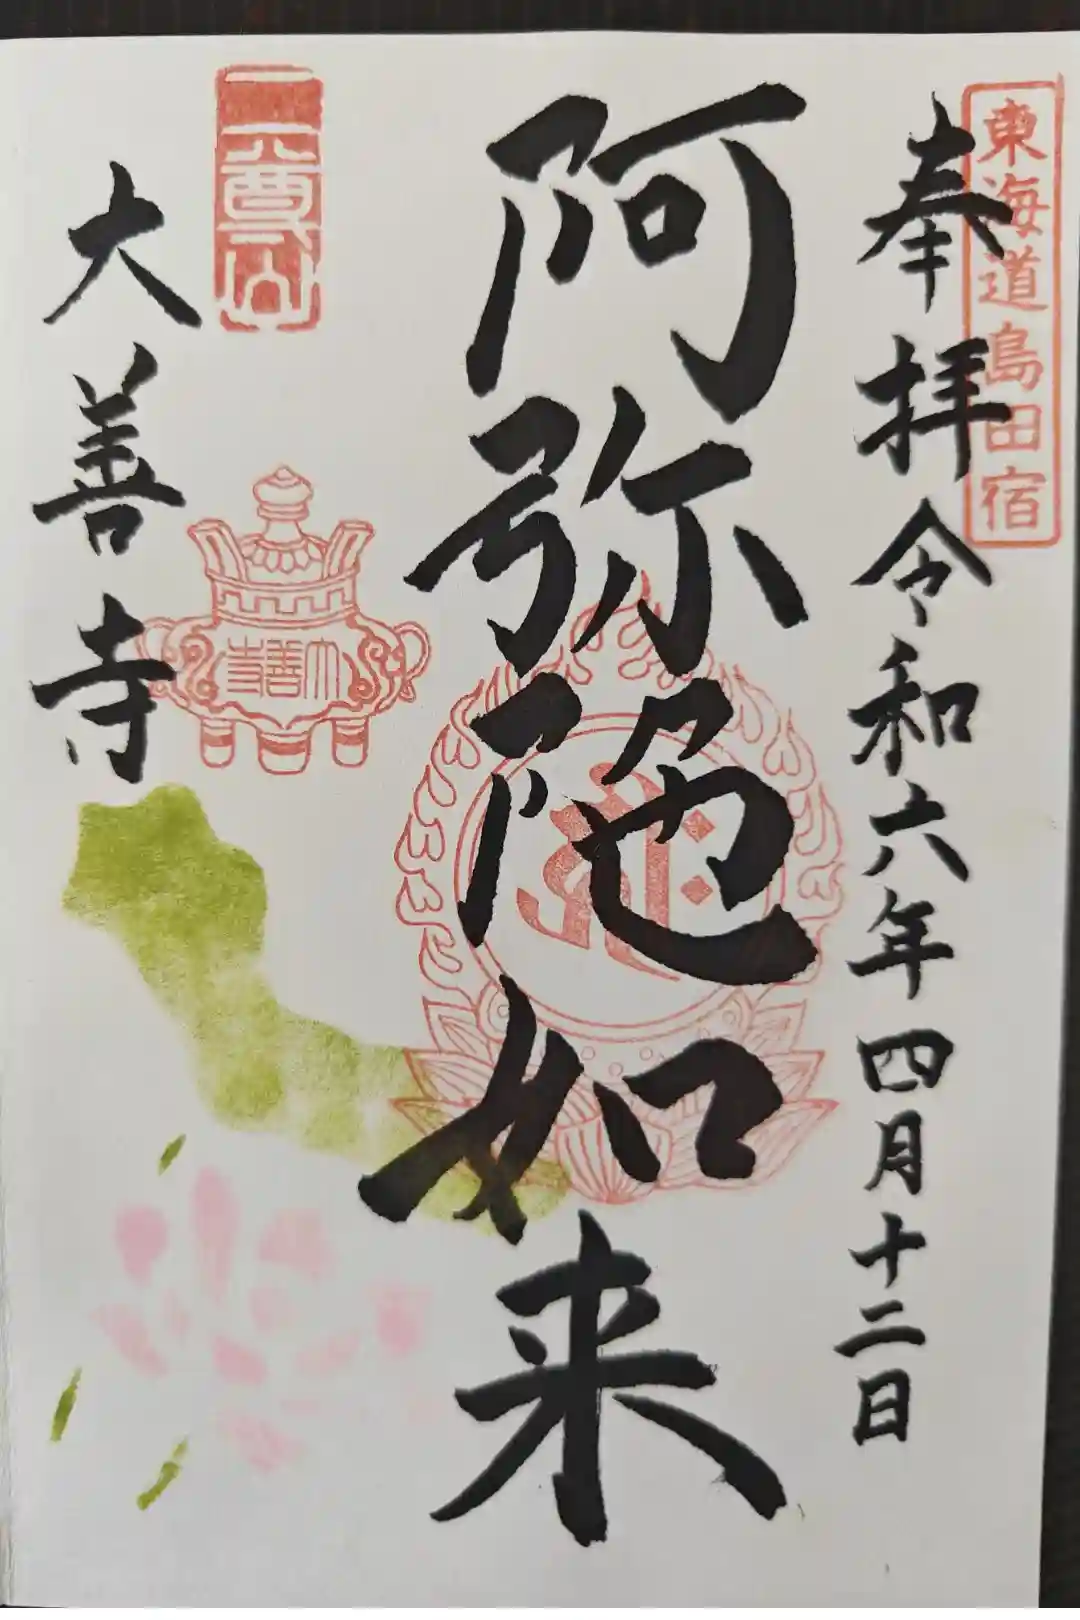 東海道島田宿
奉拝 令和六年四月十二日
阿弥陀如来
大善寺
大善寺